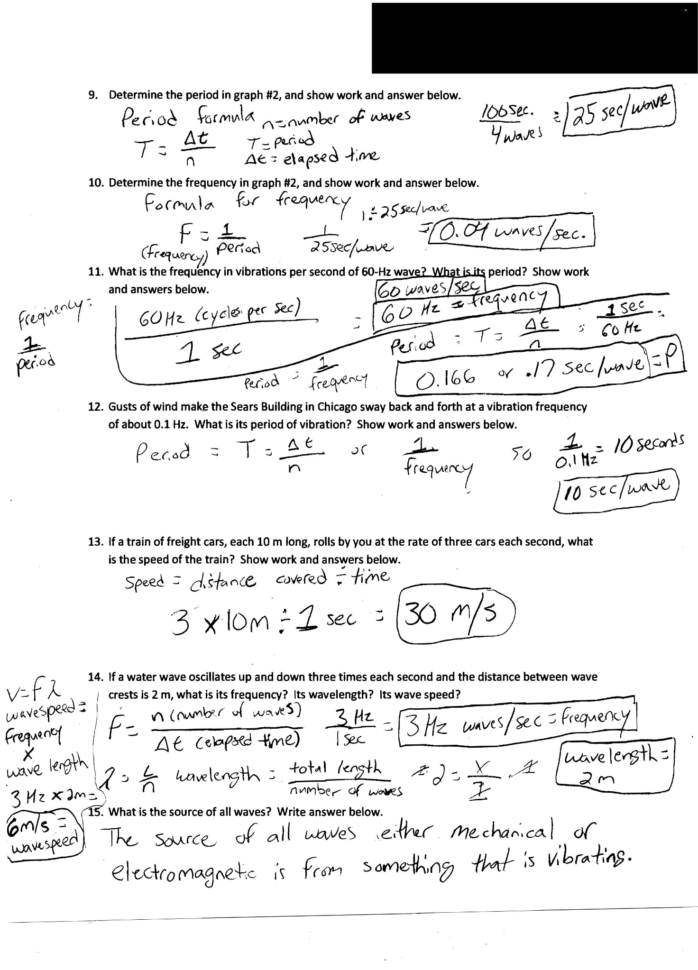 9. Determine the period in graph #2, and show work and answer below.
Period formula n=number of waves
T = Δt/n T=period
Δt = elapsed time
100 sec./4 waves = 25 sec/wave
10. Determine the frequency in graph #2, and show work and answer below.
Formula for frequency 1÷25sec/wave
F = 1/period 1/25sec/wave = 0.04 waves/sec.
(frequency)
11. What is the frequency in vibrations per second of 60-Hz wave? What is its period? Show work
and answers below.
60 waves/sec
frequency: 1/period
60Hz (cycles per sec)/1 sec = 60 Hz = frequency
Period = T = Δt/n = 1 sec/60 Hz =
Period = 1/frequency
0.166 or .17 sec/wave = P
12. Gusts of wind make the Sears Building in Chicago sway back and forth at a vibration frequency
of about 0.1 Hz. What is its period of vibration? Show work and answers below.
Period = T = Δt/n or 1/frequency so 1/0.1 Hz = 10 seconds
10 sec/wave
13. If a train of freight cars, each 10 m long, rolls by you at the rate of three cars each second, what
is the speed of the train? Show work and answers below.
Speed = distance covered ÷ time
3 x 10m ÷ 1 sec = 30 m/s
14. If a water wave oscillates up and down three times each second and the distance between wave
crests is 2 m, what is its frequency? Its wavelength? Its wave speed?
v=fλ
wavespeed =
frequency
x
wave length
3 Hz x 2m =
6m/s =
wavespeed
F = n (number of waves)/Δt (elapsed time) 3 Hz/1 sec = 3 Hz waves/sec = frequency
λ = L/n wavelength = total length/number of waves 2 = x/
wavelength =
2m
15. What is the source of all waves? Write answer below.
The source of all waves either mechanical or
electromagnetic is from something that is vibrating.